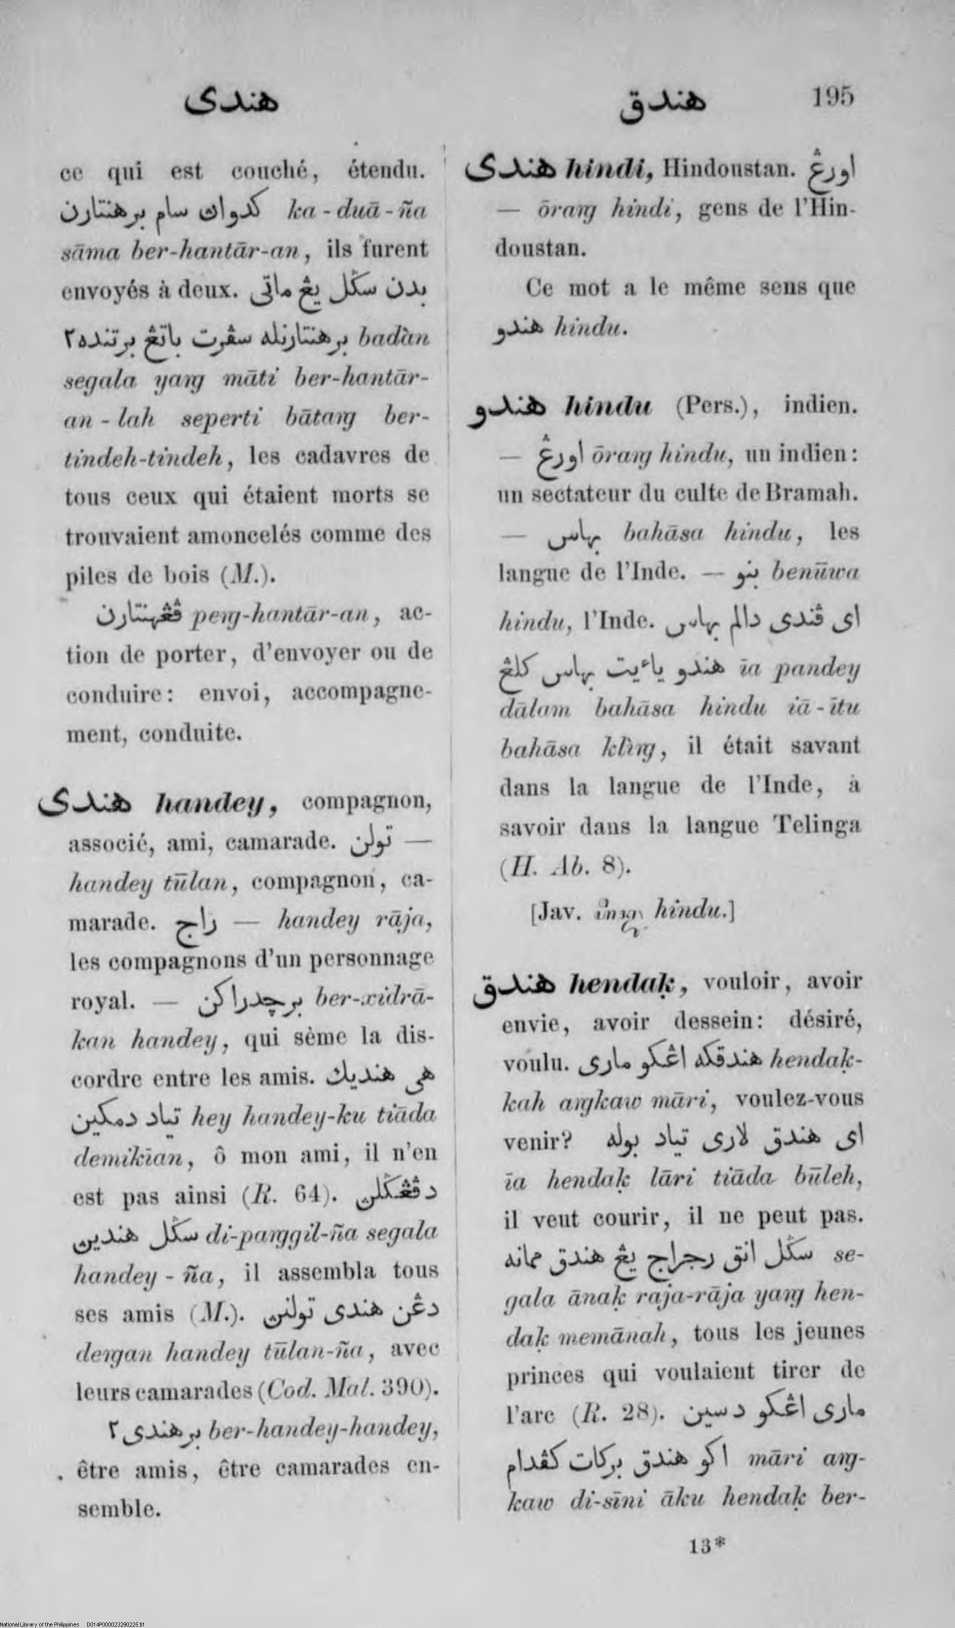 هندى
هندق 195
ce qui est couché, étendu.
كدوان سام برهنتارن ka-duā-ña
sāma ber-hantār-an, ils furent
envoyés à deux. بدن سݢل يڠ ماتى
برهنتارنله سڤرت باتڠ برتنده٢ badàn
segala yaŋ māti ber-hantār-
an-lah seperti bātaŋ ber-
tindeh-tindeh, les cadavres de
tous ceux qui étaient morts se
trouvaient amoncelés comme des
piles de bois (M.).
ڤڠهنتارن peŋ-hantār-an, ac-
tion de porter, d'envoyer ou de
conduire: envoi, accompagne-
ment, conduite.
هندى handey, compagnon,
associé, ami, camarade. تولن —
handey tūlan, compagnon, ca-
marade. راج — handey rāja,
les compagnons d'un personnage
royal. — برچدراكن ber-xidrā-
kan handey, qui sème la dis-
cordre entre les amis. هى هنديك
تياد دمكين hey handey-ku tiāda
demikīan, ô mon ami, il n'en
est pas ainsi (R. 64). دڤڠݢلن
سݢل هندين di-paŋgil-ña segala
handey-ña, il assembla tous
ses amis (M.). دڠن هندى تولنن
deŋan handey tūlan-ña, avec
leurs camarades (Cod. Mal. 390).
برهندى٢ ber-handey-handey,
être amis, être camarades en-
semble.
هندى hindi, Hindoustan. اورڠ
— ōraŋ hindi, gens de l'Hin-
doustan.
Ce mot a le même sens que
هندو hindu.
هندو hindu (Pers.), indien.
— اورڠ ōraŋ hindu, un indien:
un sectateur du culte de Bramah.
— بهاس bahāsa hindu, les
langue de l'Inde. — بنو benūwa
hindu, l'Inde. اى ڤندى دالم بهاس
هندو ياءيت بهاس كلڠ īa pandey
dālam bahāsa hindu iā-ītu
bahāsa klìŋ, il était savant
dans la langue de l'Inde, à
savoir dans la langue Telinga
(H. Ab. 8).
[Jav. hindu.]
هندق hendaḳ, vouloir, avoir
envie, avoir dessein: désiré,
voulu. هندقكه اڠكو مارى hendaḳ-
kah aŋkaw māri, voulez-vous
venir? اى هندق لارى تياد بوله
īa hendaḳ lāri tiāda būleh,
il veut courir, il ne peut pas.
سݢل انق رجراج يڠ هندق ممانه se-
gala ānaḳ raja-rāja yaŋ hen-
daḳ memānah, tous les jeunes
princes qui voulaient tirer de
l'arc (R. 28). مارى اڠكو دسين
اكو هندق بركات كڤدام māri aŋ-
kaw di-sīni āku hendaḳ ber-
13*
National Library of the Philippines